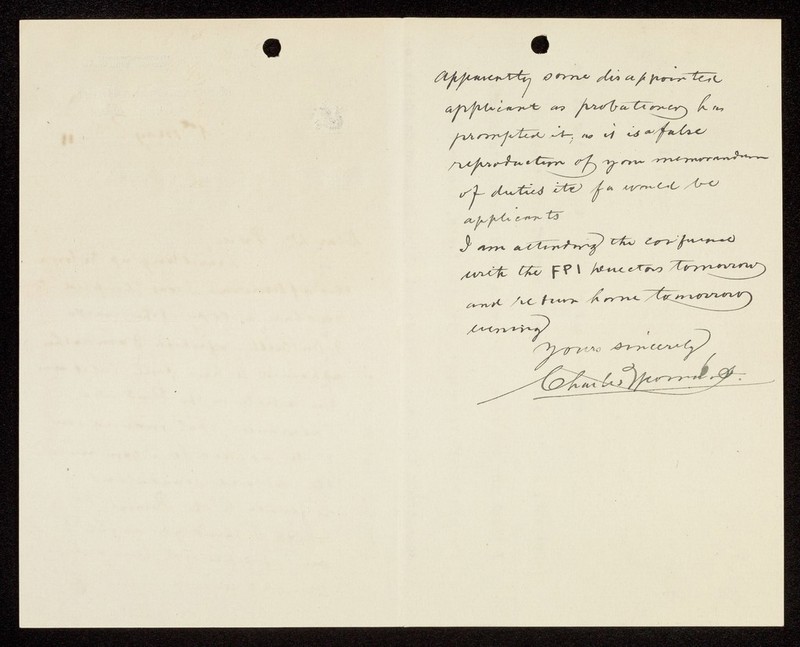 apparently some disappointed
applicant as probationer has
prompted it, as it is a false
reproduction of your memorandum
of duties etc for would be
applicants
I am attending the conference
with the FPI Directors tomorrow
and return home tomorrow
evening
Yours sincerely
Charles